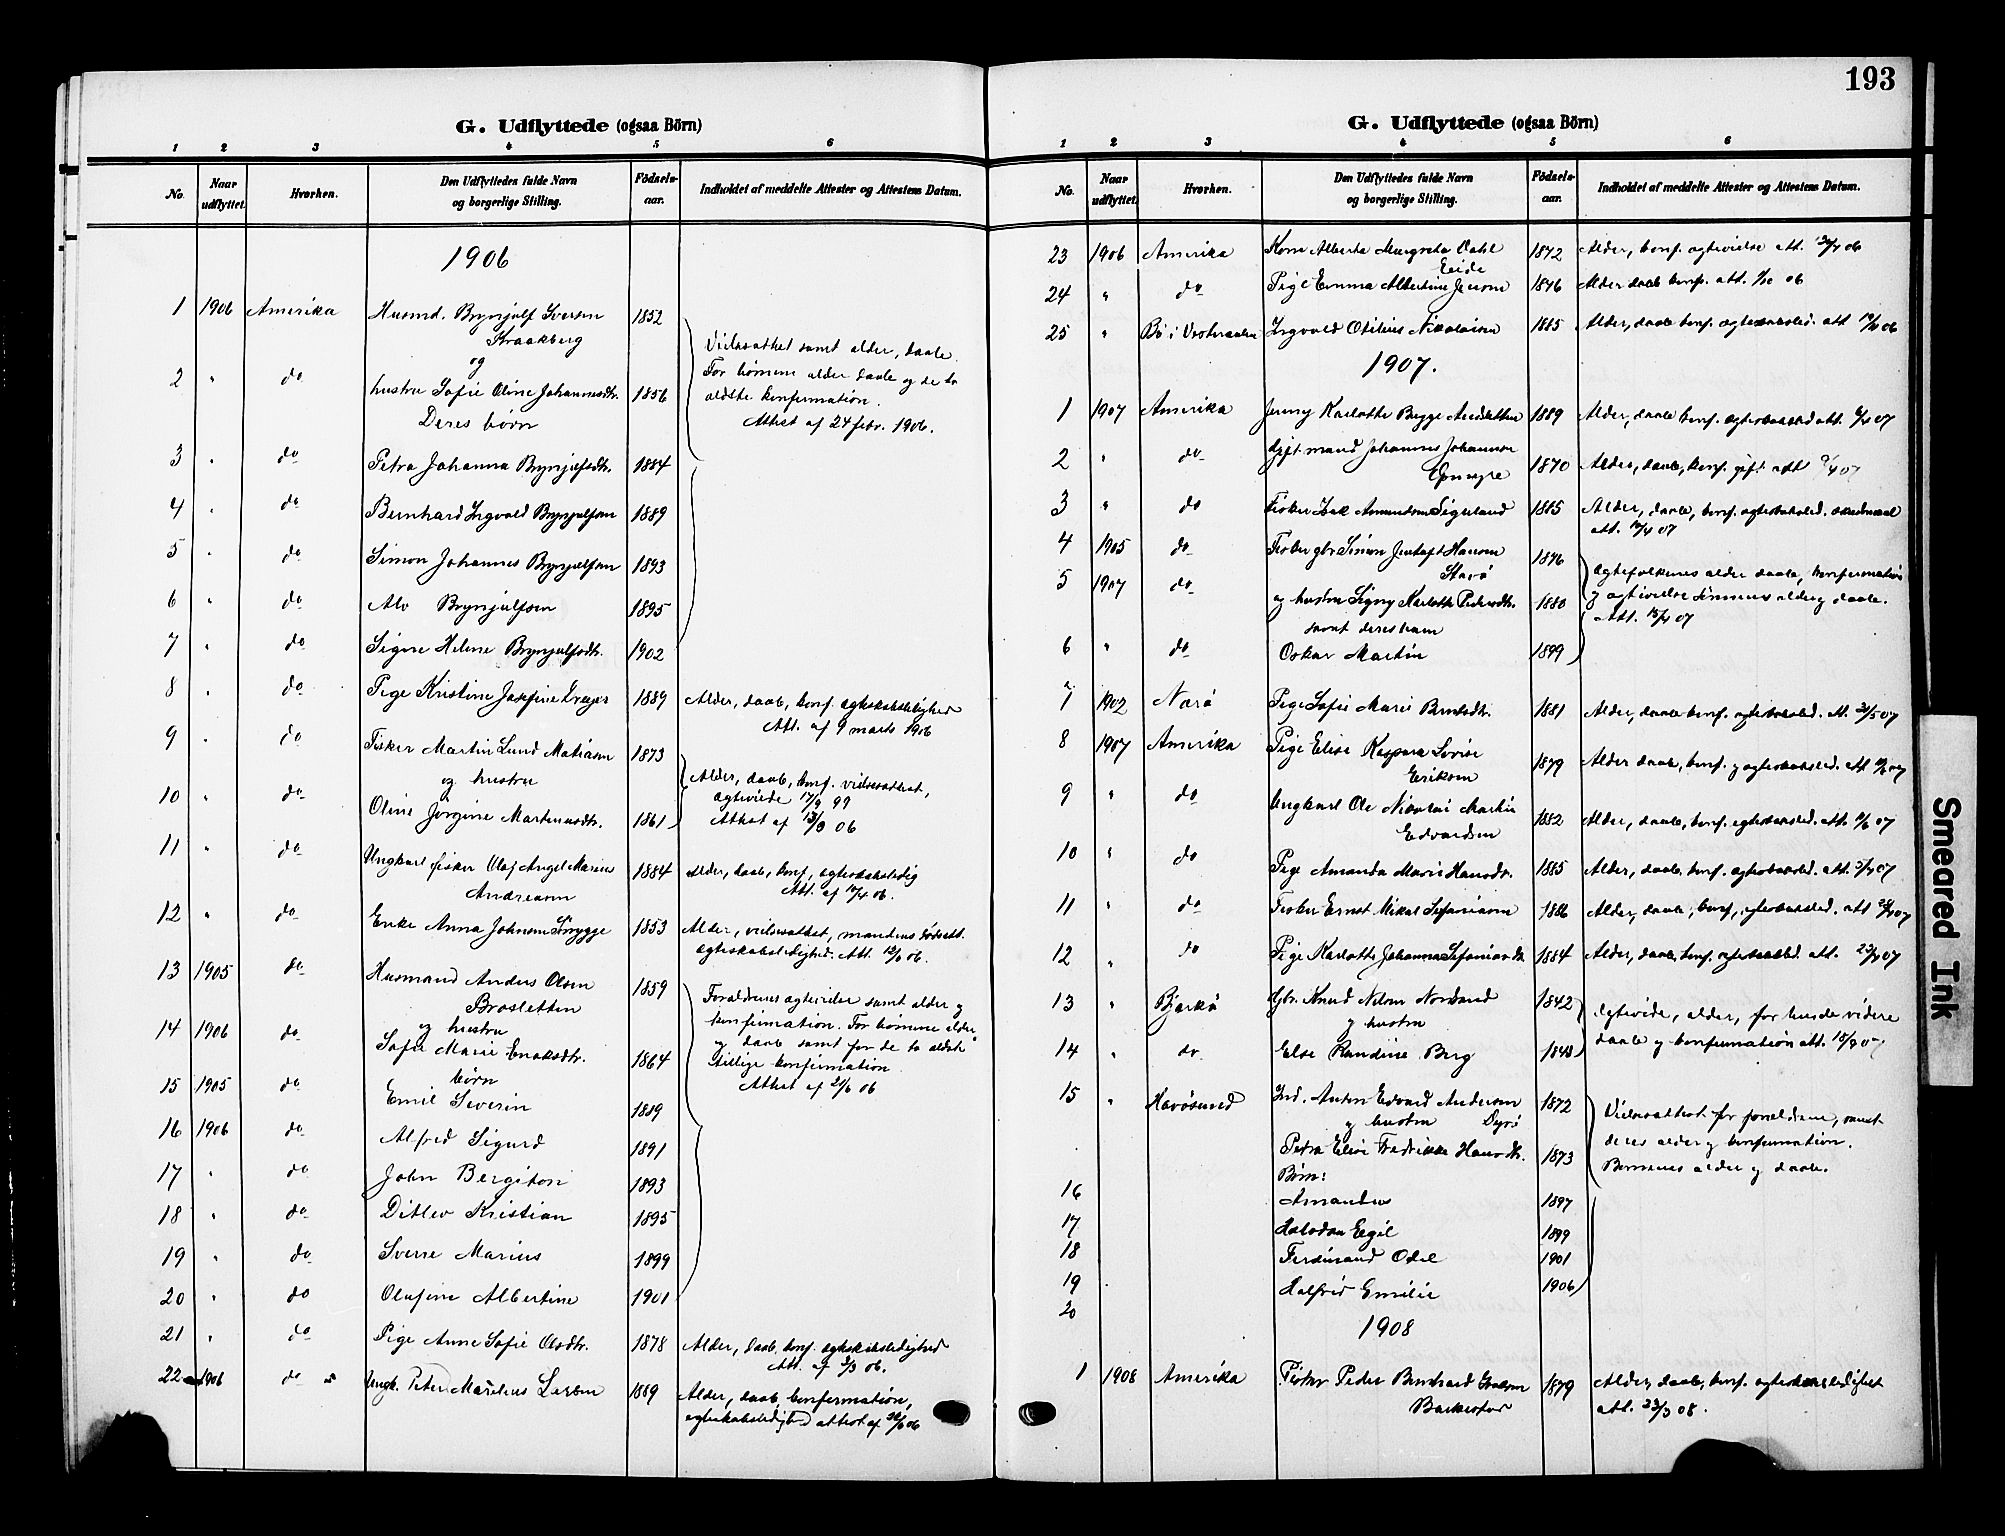 193
G. Udflyttede (ogsaa Börn)
1 2 3 4 5 6
No. Naar udflyttet. Hvorhen. Den Udflyttedes fulde Navn og borgerlige Stilling. Födsels-aar. Indholdet af meddelte Attester og Attestens Datum.
1906
1 1906 Amerika Husmd. Brynjulf Iversen 1852
Kraakberg
og
Vielsesattest samt alder, daab.
For børnene alder daab og de to
ældste konfirmation.
Attest af 24 febr. 1906.
2 " do hustru Sofie Oline Johannesdtr. 1856
Deres børn
3 " do Petra Johanna Brynjulfsdtr. 1884
4 " do Bernhard Ingvald Brynjulfsen 1889
5 " do Simon Johannes Brynjulfsen 1893
6 " do Alv Brynjulfsen 1895
7 " do Signe Helene Brynjulfsdtr. 1902
8 " do Pige Kristine Josefine 1889 Alder, daab, konf. egteskabsledighed
Att. af 9 marts 1906
9 " do Fisker Martin Lund Matiasen 1873
og hustru
Alder, daab, konf. vielsesattest,
Attest af 13/3 06
10 " do Oline Jörgine Martensdtr. 1861
11 " do Ungkarl fisker Olaf Angel Marius 1884 Alder, daab, konf, egteskabsledig
Andreasen Att. af 17/4 06.
12 " do Enke Anna Johnsen 1853 Alder, vielsesattest, mandens dødsatt.
egteskabsledighed. Att. 06.
13 1905 do Husmand Anders Olsen 1859
Brosletten
og hustru
Forældrenes egtevielse samt alder og
konfirmation. For børnene alder
og daab samt for de to ældste
tillige konfirmation.
Attest af 21/6 06
14 1906 do Sofie Marie Enoksdtr. 1864
børn
15 1905 do Emil Severin 1889
16 1906 do Alfred Sigurd 1891
17 " do John Bergiton 1893
18 " do Ditlev Kristian 1895
19 " do Sverre Marius 1899
20 " do Olufine Albertine 1901
21 " do Pige Anne Sofie Olsdtr. 1878 Alder, daab, konf. egteskabsledighed
Att. af 06.
22 1906 do Ungk. Peter Marelius 1889 Alder, daab, konfirmation,
egteskabsledighed attest af 06
G. Udflyttede (ogsaa Börn)
1 2 3 4 5 6
No. Naar udflyttet. Hvorhen. Den Udflyttedes fulde Navn og borgerlige Stilling. Födsels-aar. Indholdet af meddelte Attester og Attestens Datum.
23 1906 Amerika Kone Alberta Margreta Dahl 1872 Alder, konf. egtevielse att. 06
Eide
24 " do Pige Emma Albertine Jensen 1876 Alder daab konf. att. 1/10 06
25 " Bø i Vesteraalen Ingvald Otilius Nikolaisen 1885 Alder, daab konf. egteskabsled. att 06
1907.
1 1907 Amerika Jenny Karlotte Bugge 1889 Alder, daab konf. egteskabsled att. 07
2 " do Gift mand Johannes Johannsen 1870 Alder, daab, konf. gift att 9/4 07
3 " do Fisker Isak Amundsen Sigerland 1885 Alder, daab, konf. egteskabsled.
att. 07
4 1905 do Fisker gbr. Simon Jentoft Hansen 1876
Starö
Egtefolkenes alder daab, konfirmation
og egtevielse sønnens alder og daab.
Att. 07
5 1907 do og hustru Signy Karlotte Pedersdtr. 1880
samt deres barn
6 " do Oskar Martin 1899
7 1902 Pige Sofie Marie Berntsdtr. 1881 Alder, daab konf. egteskabsled. att. 21/5 07
8 1907 Amerika Pige Elise Kaspara Lovise 1879 Alder daab, konf. og egteskabsled. att 07
Eriksen
9 " do Ungkarl Ole Nikolai Martin 1882 Alder, daab, konf. egteskabsled. att. 07
Edvardsen
10 " do Pige Amanda Marie Hansdtr. 1885 Alder, daab, konf. egteskabsled. att. 07
11 " do Fisker Ernst Mikal Sefaniasen 1886 Alder, daab, konf, egteskabsled. att 07
12 " do Pige Karlotte Johanna Sefaniasdtr 1884 Alder, daab, konf. egteskabsled. att. 07
13 " Bjarkö Gbr. Knud Nilsen Nordsand 1842
og hustru
Egtevide, alder, for hende videre
daab og konfirmation att. 18/9 07
14 " do. Else Randine Berg 1848
15 " Havösund Ind. Anton Edvard Andersen 1872
og hustru Dyrö
Vielsesattest for forældrene, samt
deres alder og konfirmation.
Børnenes alder og daab.
Petra Elise Fredrikke Hansdtr. 1873
Børn:
16 Amandus 1897
17 Halvdan Eegil 1899
18 Ferdinand Odel 1901
19 Halfrid Emilie 1906
20
1908
1 1908 Amerika Fisker Peder Bernhard 1879 Alder, daab, konf. egteskabsledighet
att. 23/3 08.
Smeared Ink